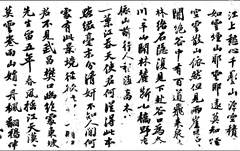 江上愁心千疊山浮空積翠
如雲煙山耶雲耶遠莫知煙
空雲散山依然但見兩崖蒼
暗絕谷中有百道飛來泉
縈林絡石隱復見下赴谷口為奔
川川平山開林麓斷小橋野店
依山前行人稍度喬木外漁舟
一葉江吞天使君何從得此本
點綴毫末分清妍不知人間何
處有此境徑欲往
君不見武昌樊口幽絕處東坡
先生留五年春風搖江天漠
莫雲卷雨山娟丹楓翻鴉伴